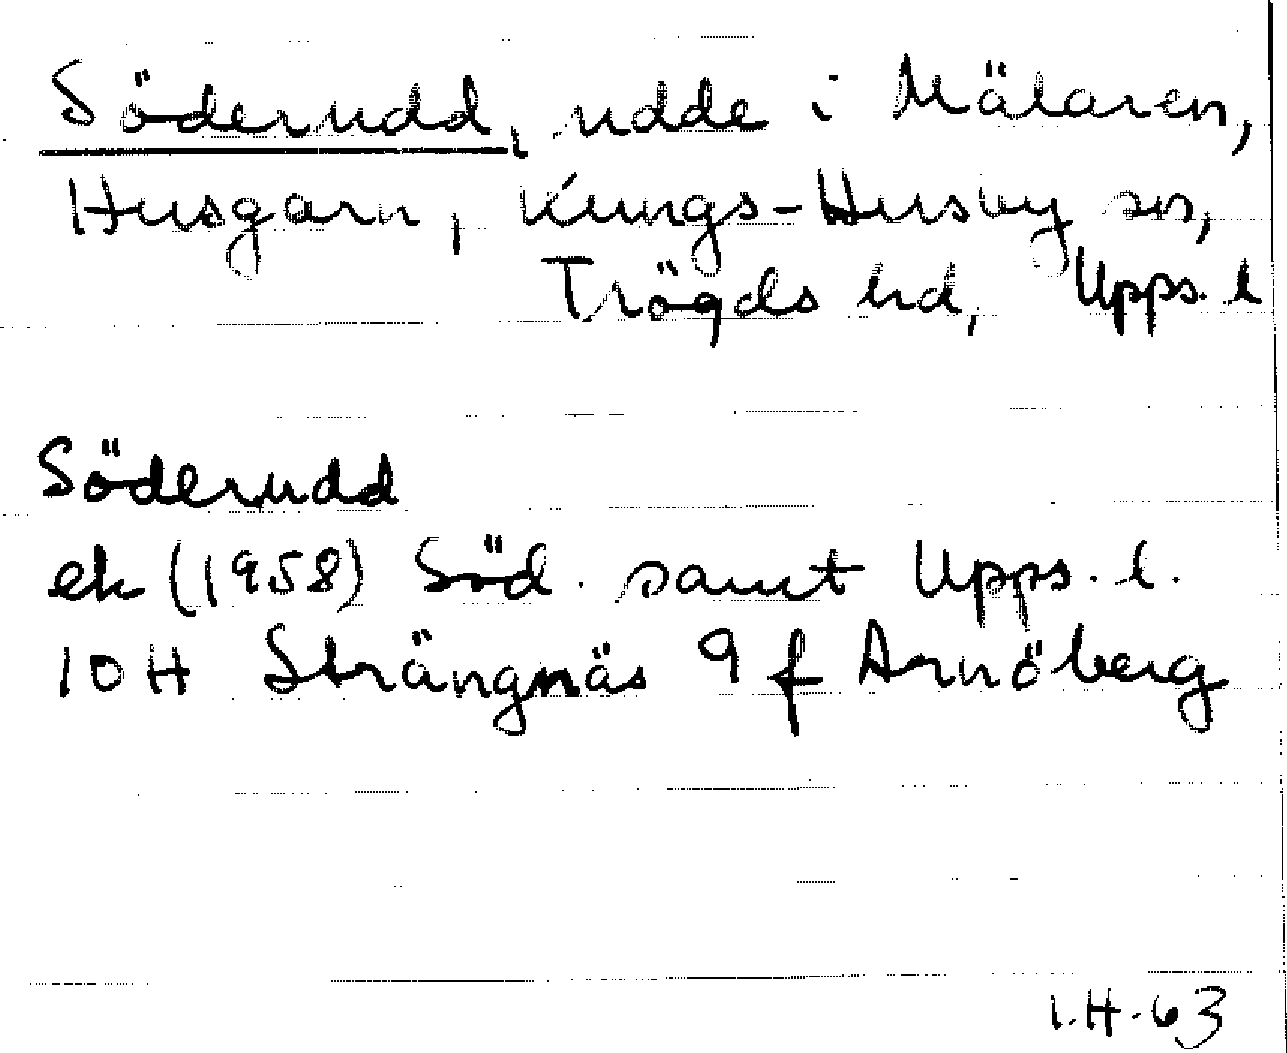 Söderudd, udde i Mälaren,
Husgarn, Kungs-Husby sn,
Trögds hd, Upps. l
Söderudd
ek (1958) Söd. samt Upps. l.
10 H Strängnäs 9 f Arnöberg
I.H. 63